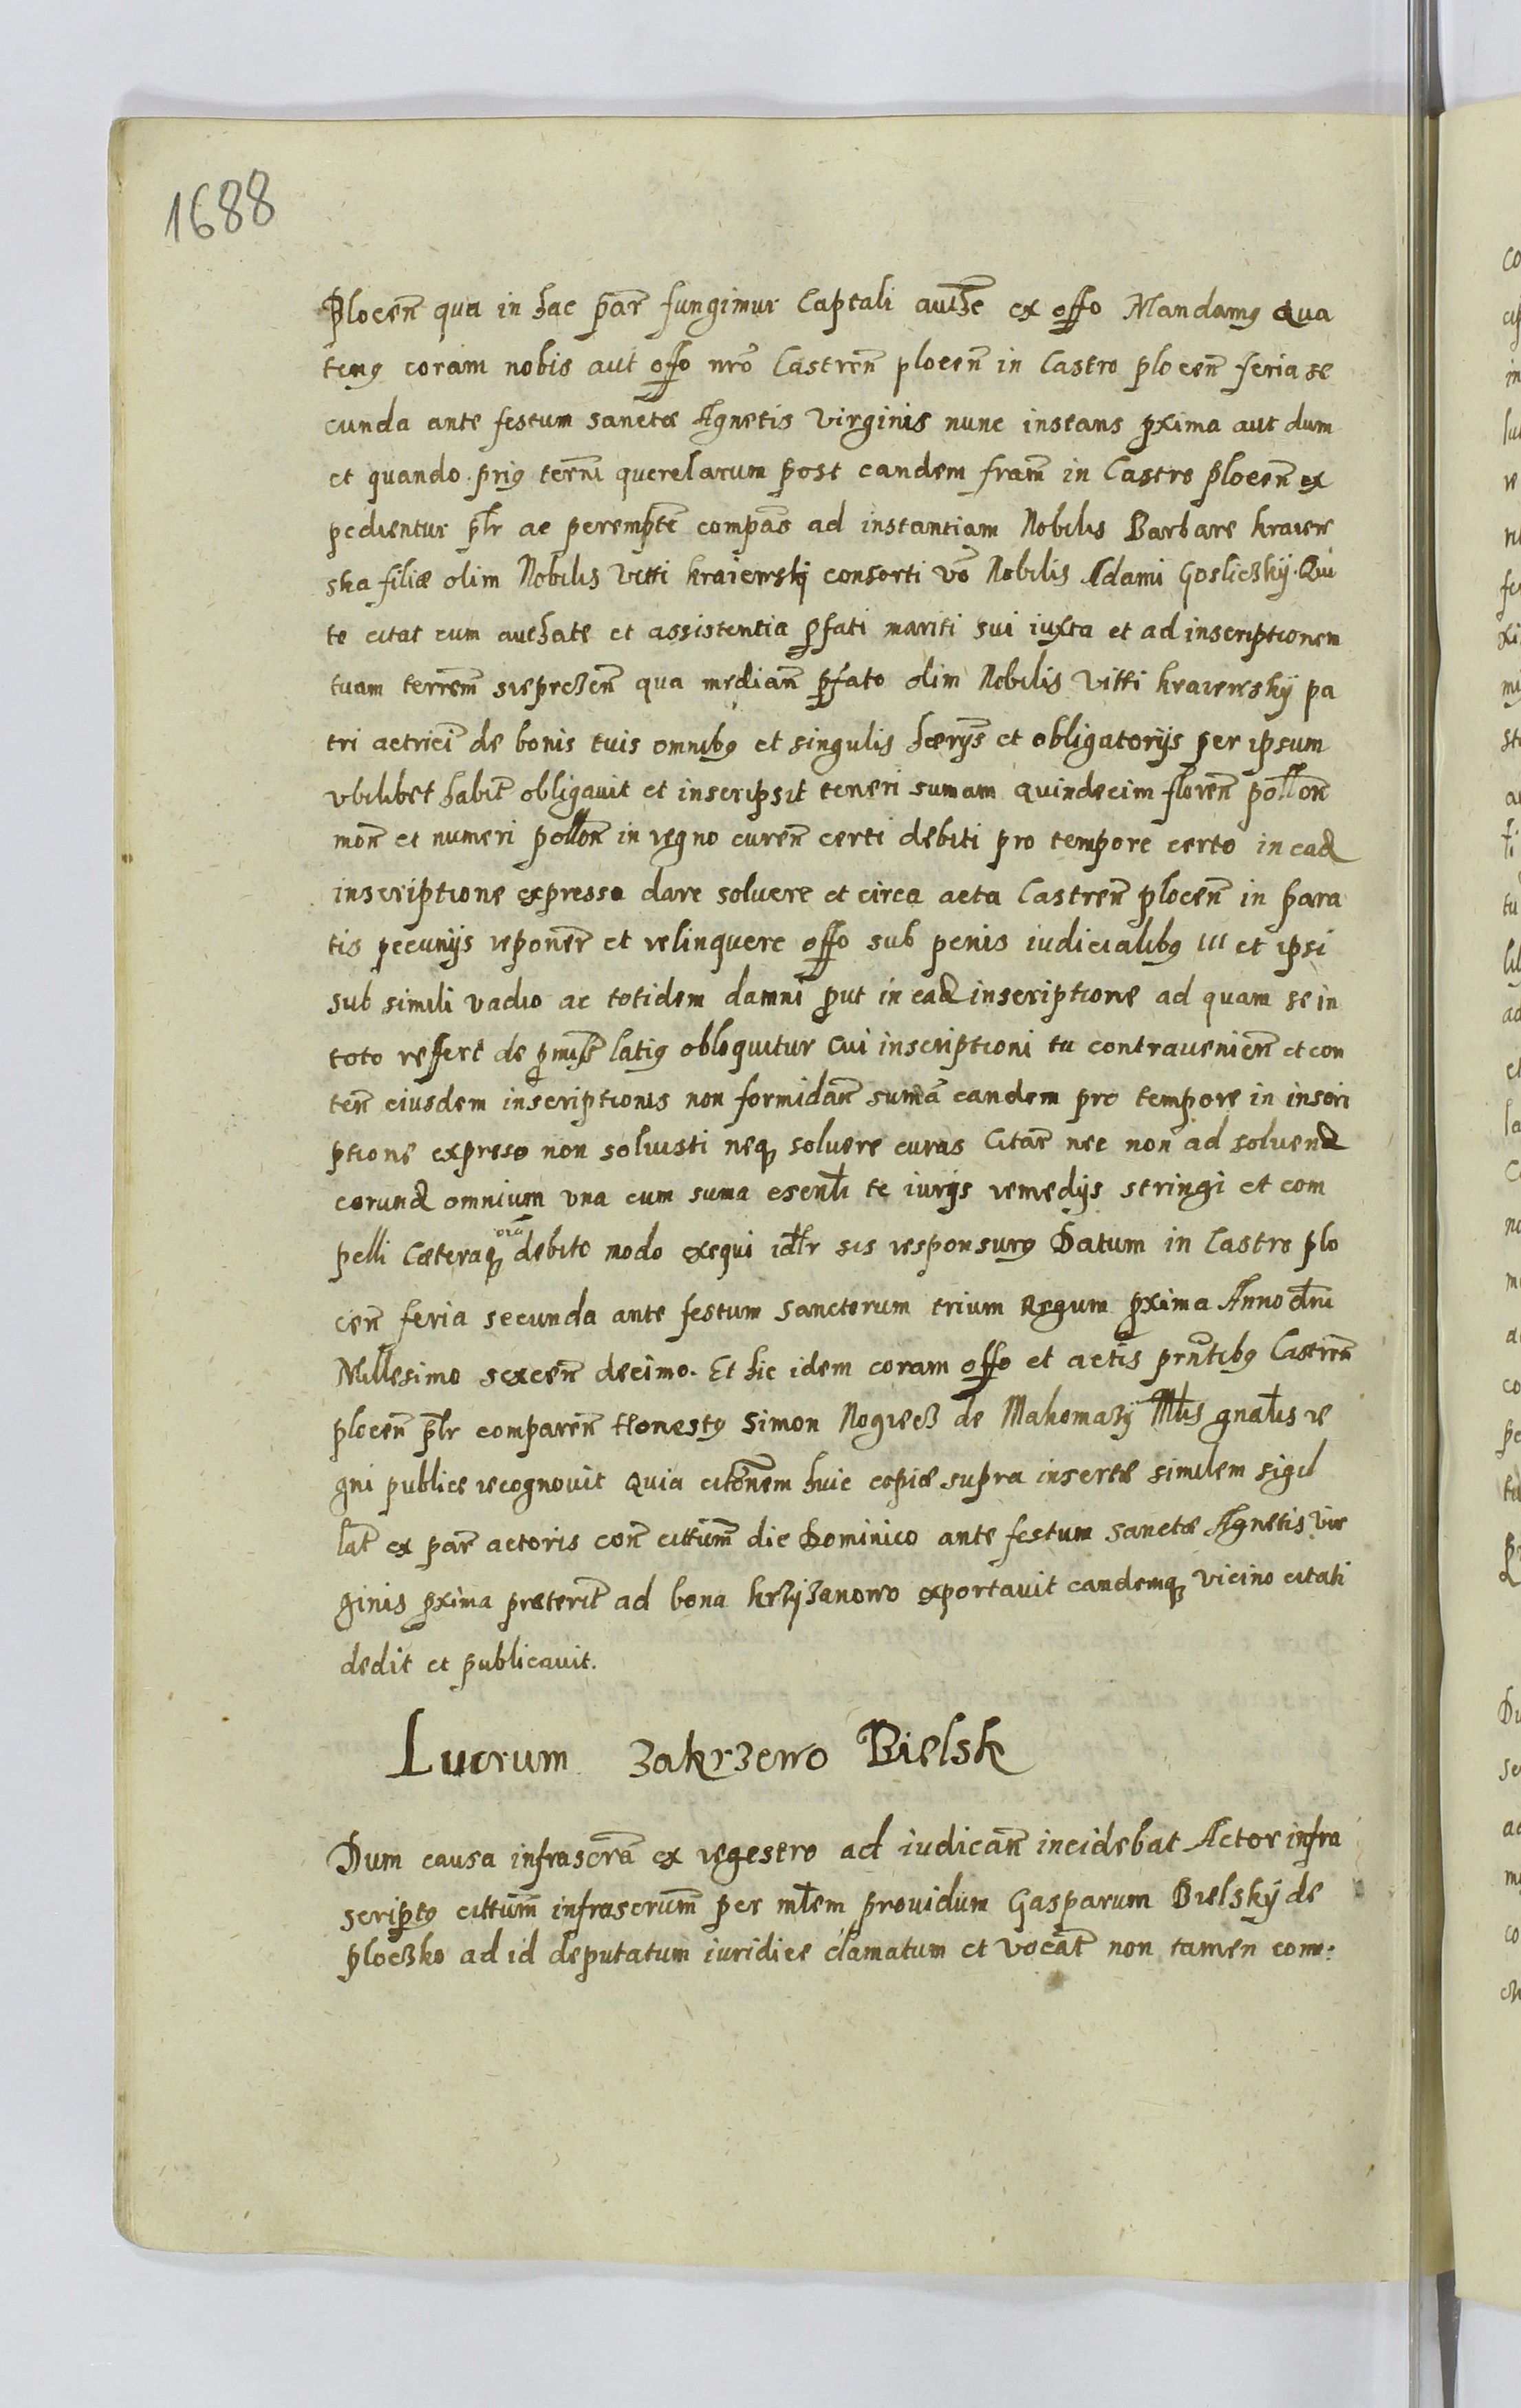 1688
Plocen̄ qua in hac par̄ fungimur Captali autħe ex offo Mandamꝯ Qua
tenꝯ coram nobis aut offo nrō Castren̄ plocen̄ in Castro plocen̄ feria se
cunda ante festum sanctæ Agnetis Virginis nunc instans p̱xima aut dum
et quando priꝯ term̄i querelarum post eandem fram̄ in Castro plocen̄ ex
pedientur pl̄r ac perempte̅ compās ad instantiam Nobilis Barbare kraiew
ska filiæ olim Nobilis Vitti kraiewskij consorti vō Nobilis Adami Gosliczkij Qui
te citat cum autħate et assistentia p̱fati mariti sui iuxta et ad inscriptionem
tuam terrem̄ sieprczen̄ qua median̄ p̱fato olim Nobilis Vitti kraiewskij pa
tri actrici̅ de bonis tuis omnibꝯ et singulis hærijs̄ et obligatorijs per ipsum
vbilibet habit̄ obligauit et inscripsit teneri sumam quindecim floren̄ pollon̄
mon̄ et numeri pollon̄ in regno curen̄ certi debiti pro tempore certo in ead
inscriptione expresso dare soluere et circa acta Castren̄ plocen̄ in para
tis pecunijs reponer̄ et relinquere offo sub penis iudicialibꝯ III et ipsi
sub simili vadio ac totidem damni put in ead inscriptione ad quam se in
toto reffert de p̱miss̄ latiꝯ obloquitur Cui inscriptioni tu contrauenien̄ et con
ten̄ eiusdem inscriptionis non formidan̄ sumā eandem pro tempore in inscri
ptione expreso non soluisti neqꝫ soluere curas Citar̄ nec non ad soluend
eorund omnium vna cum suma esentl̄i te iurijs remedijs stringi et com
pelli Cæteraqꝫ oīa debito modo exequi idl̄r sis responsurꝯ Datum in Castro plo
cen̄ feria secunda ante festum sanctorum trium Regum p̱xima Anno dn̄i
Millesimo sexcen̄ decimo. Et hic idem coram offo et actis prn̄tibꝯ Castren̄
plocen̄ pl̄r comparen̄ Honestꝯ Simon Nogiecz de Mahomazij Mtl̄is gnal̄is re
gni publice recognouit Quia citōnem huic copiæ supra insertæ similem sigil
lat̄ ex par̄ actoris con̄ cittum̄ die Dominico ante festum sanctæ Agnetis Vir
ginis p̱xima præterit̄ ad bona krzijzanowo exportauit eandemqꝫ vicino citati
dedit et publicauit.
Lucrum zakrzewo Bielsk
Dum causa infrascrā ex regestro ad iudican̄ incidebat Actor infra
scriptꝯ cittum̄ infrascrum̄ per mtl̄em prouidum Gasparum Bielskij de
ploczko ad id deputatum iuridice clamatum et vocat̄ non tamen com: